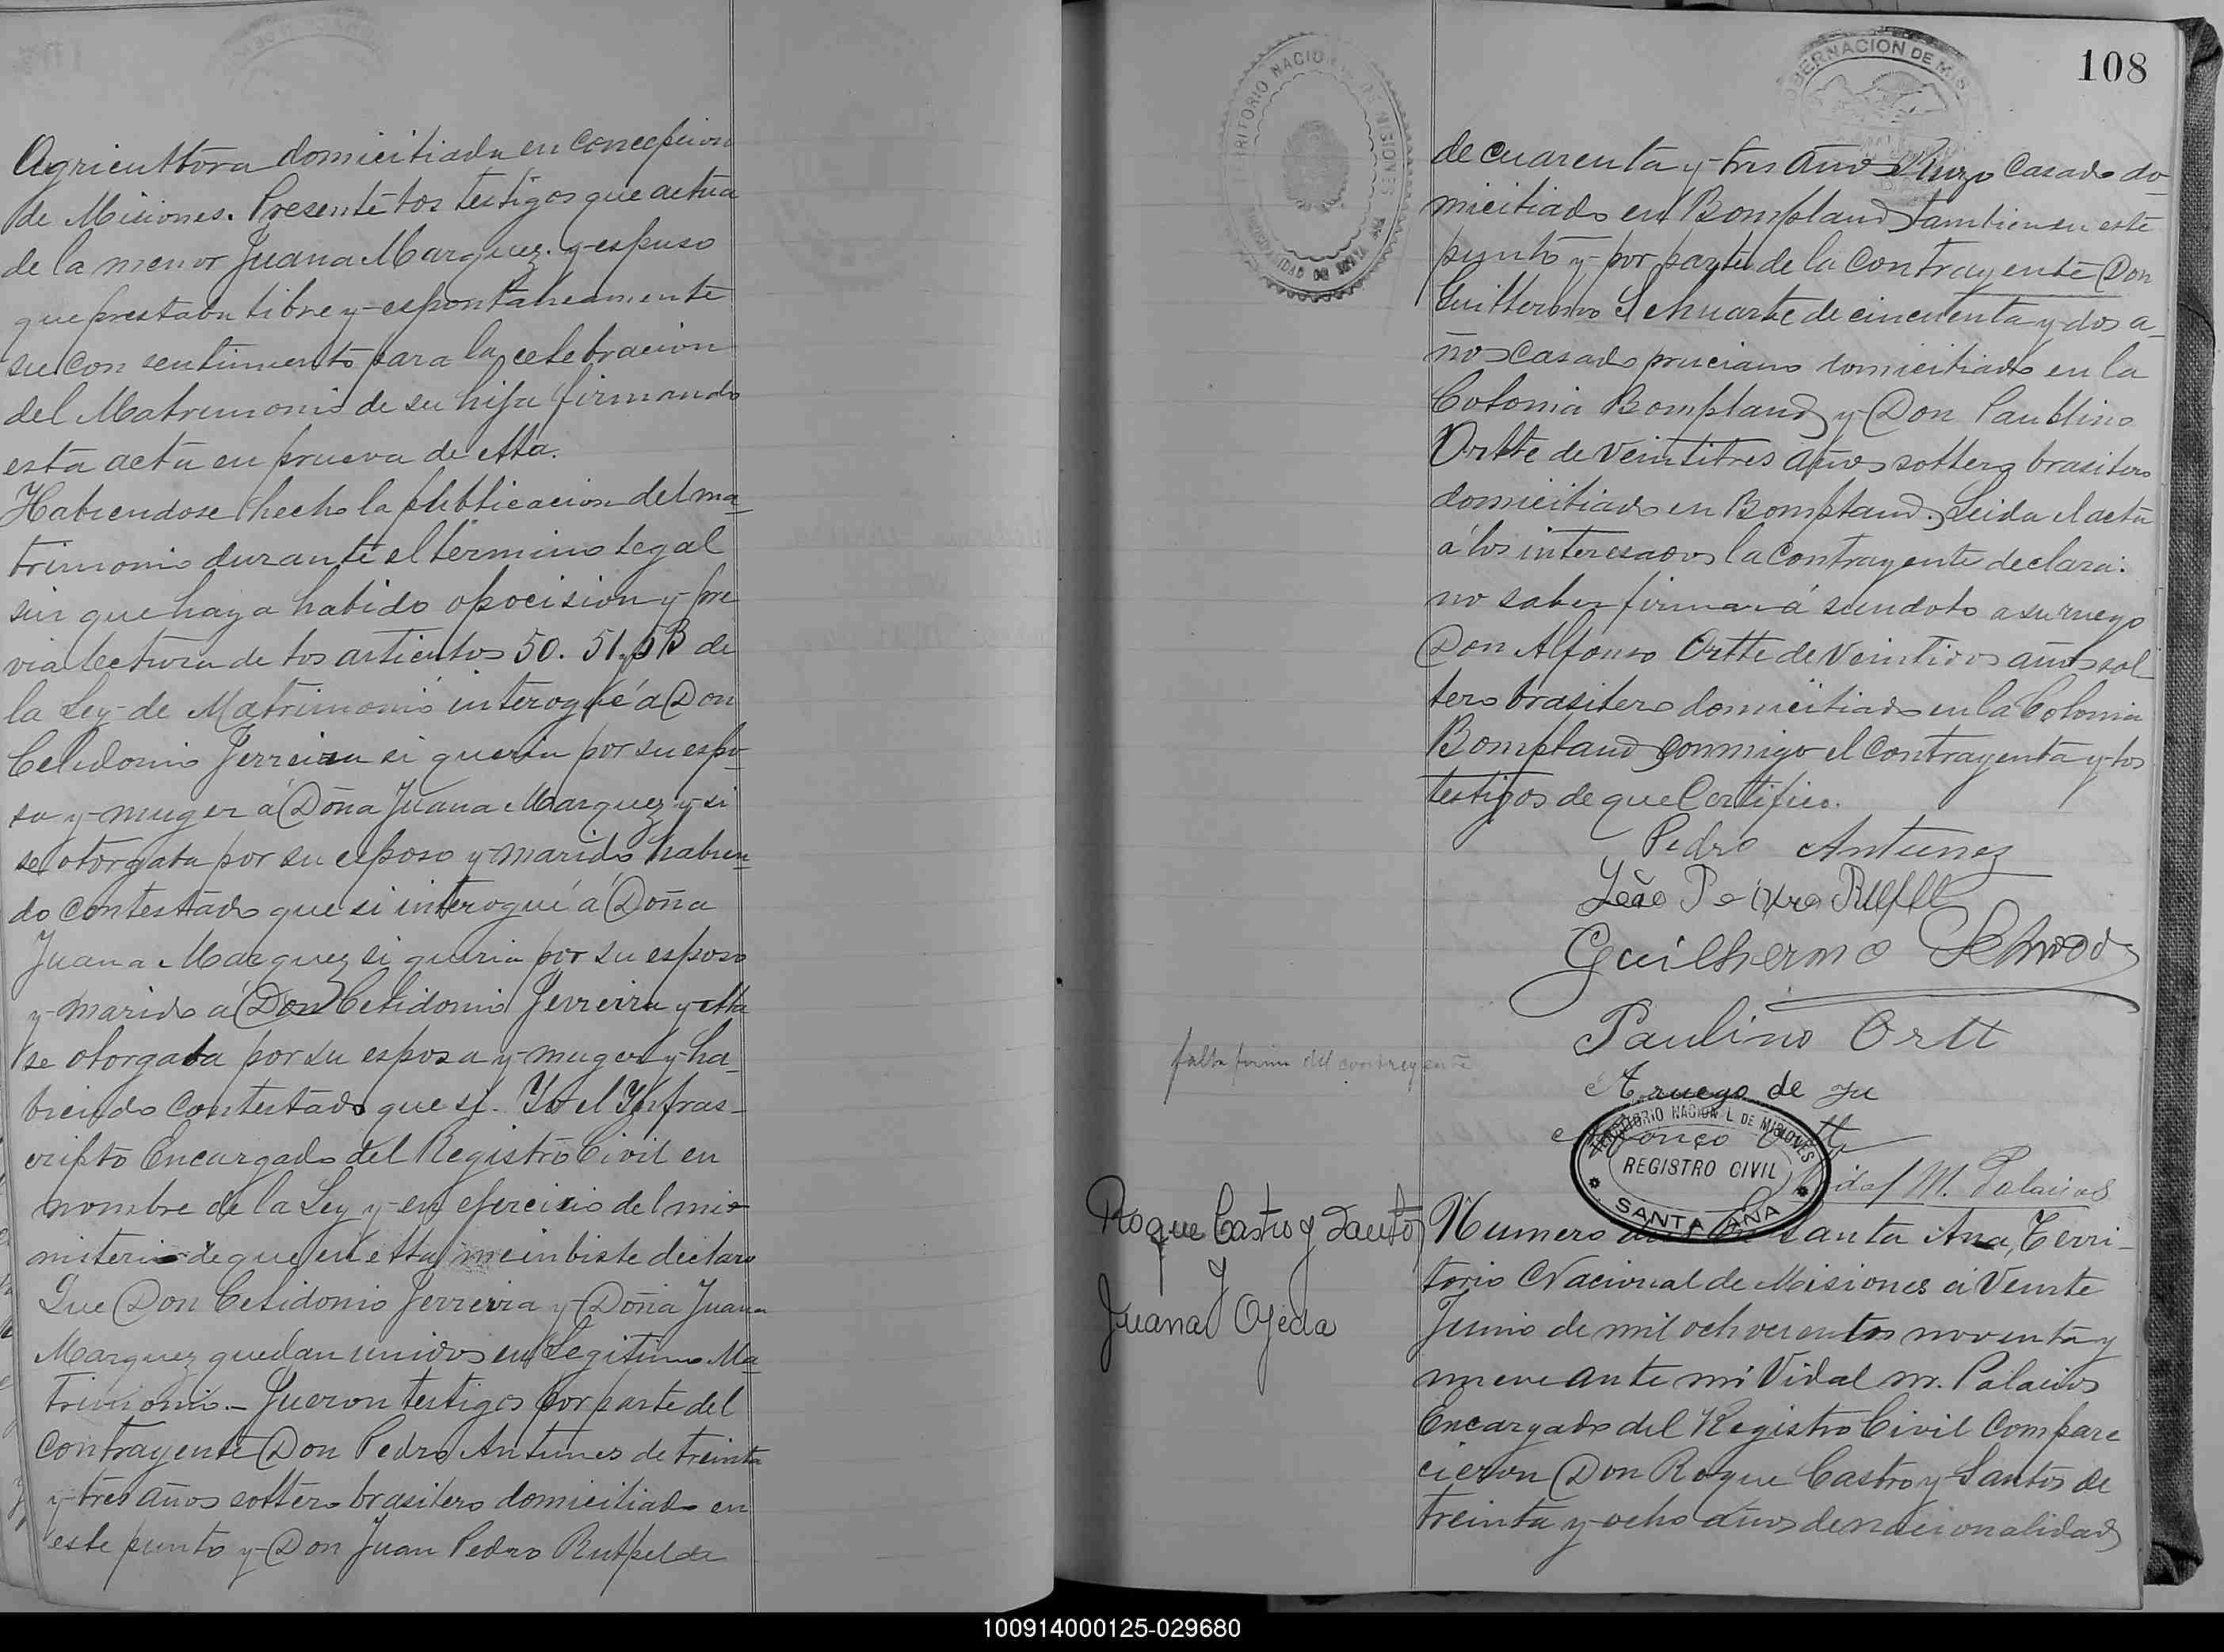 Agricultora domiciliada en Concepcion
de Misiones. Presente los testigos que actua
de la menor Juana Marquez. y espuso
que prestaba libre y espontaneamente
su consentimiento para la celebracion
del Matrimonio de su hija firmando
esta acta en prueva de ella.
Habiendose hecho la publicacion del ma-
trimonio durante el termino legal
sin que haya habido opocision y pre
via lectura de los articulos 50. 51. 53 de
la Ley de Matrimonio interogué á Don
Celidonio Ferreira si queria por su espo-
sa y muger á Doña Juana Marquez y si
se otorgaba por su esposo y marido habien-
do contestado que si interogué á Doña
Juana Marquez si queria por su esposo
y marido á Don Celidonio Ferreira y ella
se otorgaba por su esposa y muger y ha-
biendo contestado que si. Yo el Ynfras-
cripto Encargado del Registro Civil en
nombre de la Ley y en ejercicio del mi
misterio de que en ella me inbiste declaro
Que Don Celidonio Ferreira y Doña Juana
Marquez quedan unidos en Legitimo Ma-
trimonio.- Fueron testigos por parte del
contrayente Don Pedro Antunes de treinta
y tres años soltero brasilero domiciliado en
este punto y Don Juan Pedro Rutpel de
108
GOBERNACION DE MIS
TERRITORIO NACIONAL DE MISIONES
de cuarenta y tres años Ruzo casado do-
miciliado en Bompland tambien en este
punto y por parte de la contrayente Don
Guillermo Schuarte de cincuenta y dos a-
ños casado pruciano domiciliado en la
Colonia Bompland y Don Paublino
Ortte de veintitres años soltero brasilero
domiciliado en Bompland. Leida el acta
á los interesados la contrayente declara:
no saber firmar á a su ruego
Don Alfonso Ortte de veintidos años sol
tero brasilero domiciliado en la Colonia
Bompland conmigo el contrayenta y los
testigos de que Certifico.
Pedro Antunez
João Pedro
Guilhermo
Paulino Ortt
falta firma del contrayente
A ruego de
TERRITORIO NACIONAL DE MISIONES
REGISTRO CIVIL
SANTA ANA
Vidal M. Palacios
Roque Castro y Santos
Juana Ojeda
Numero En Santa Ana, Terri-
torio Nacional de Misiones á Veinte
Junio de mil ochocientos noventa y
nueve ante mi Vidal M. Palacios
Encargado del Registro Civil Compare
cieron Don Roque Castro y Santos de
treinta y ocho años de nacionalidad
100914000125-029680